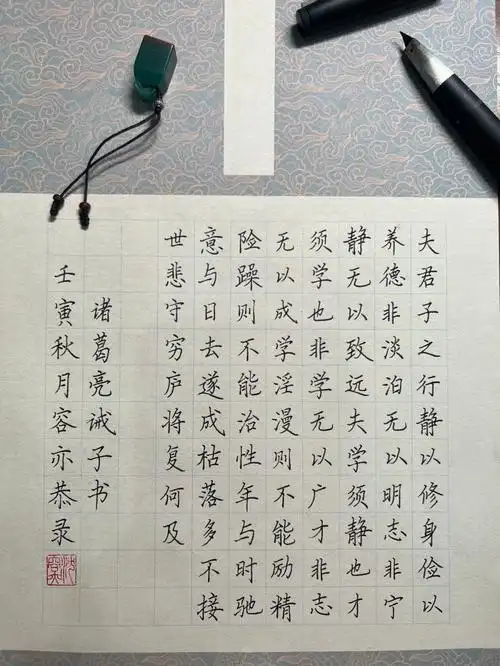 夫君子之行静以修身俭以
养德非淡泊无以明志非宁
静无以致远夫学须静也才
须学也非学无以广才非志
无以成学淫漫则不能励精
险躁则不能治性年与时驰
意与日去遂成枯落多不接
世悲守穷庐将复何及
诸葛亮诫子书
壬寅秋月容亦恭录